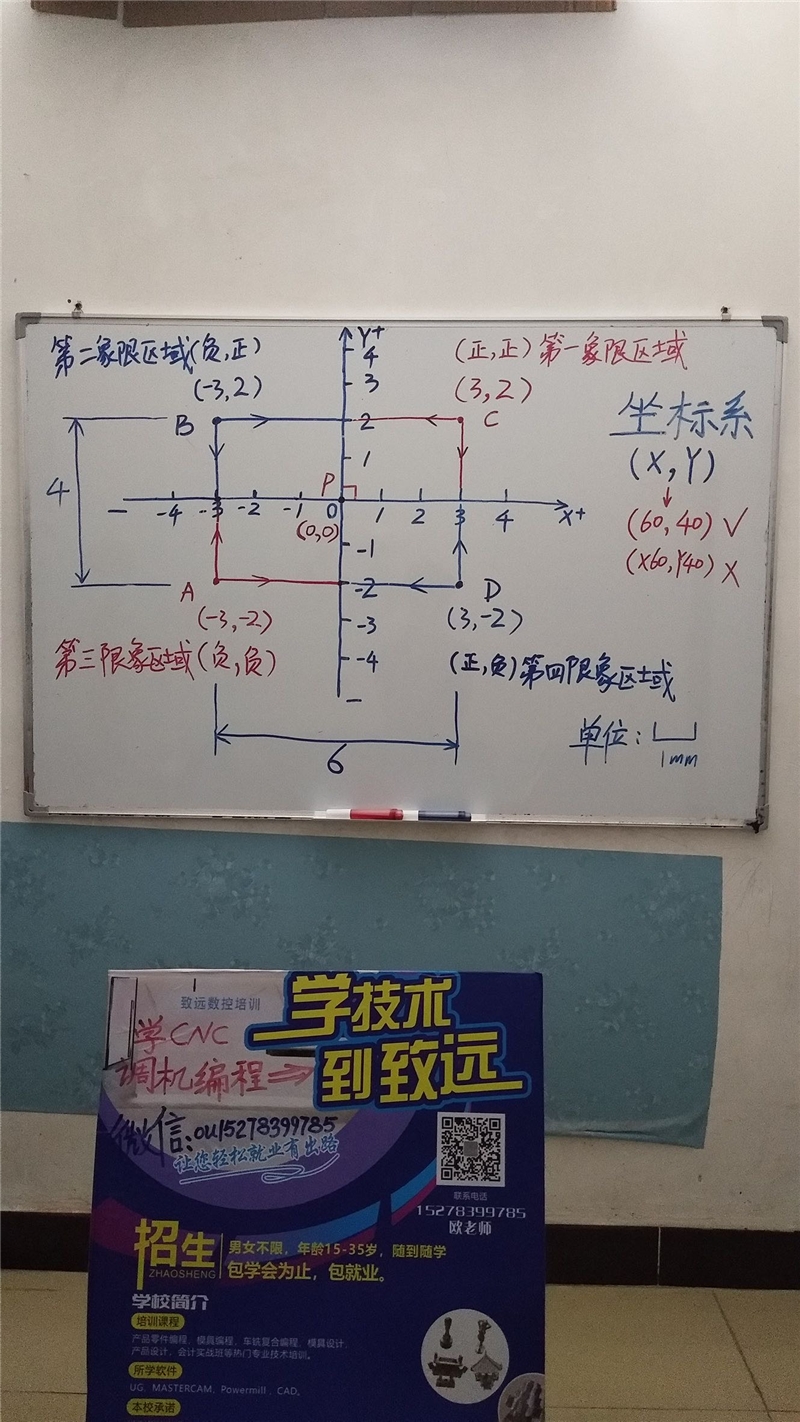 第二象限区域(负,正)
Y+
(正,正)第一象限区域
(-3,2)
4
3
(3,2)
坐标系
(X,Y)
B
2
C
4
1
P
(60,40)√
(X60,Y40)X
-
-4
-3
-2
-1
0
1
2
3
4
X+
(0,0)
-1
A
-2
D
(-3,-2)
-3
(3,-2)
第三限象区域(负,负)
-4
(正,负)第四限象区域
-
6
单位:
1mm
致远数控培训
学技术
到致远
学CNC
调机编程⇒
微信:ou15278399785
让您轻松就业有出路
联系电话
15278399785
招生
ZHAOSHENG
男女不限,年龄15-35岁,随到随学
包学会为止,包就业。
学校简介
培训课程
产品零件编程、模具编程、车铣复合编程、模具设计、
产品设计、会计实战班等热门专业技术培训。
所学软件
UG、MASTERCAM、Powermill、CAD。
本校承诺